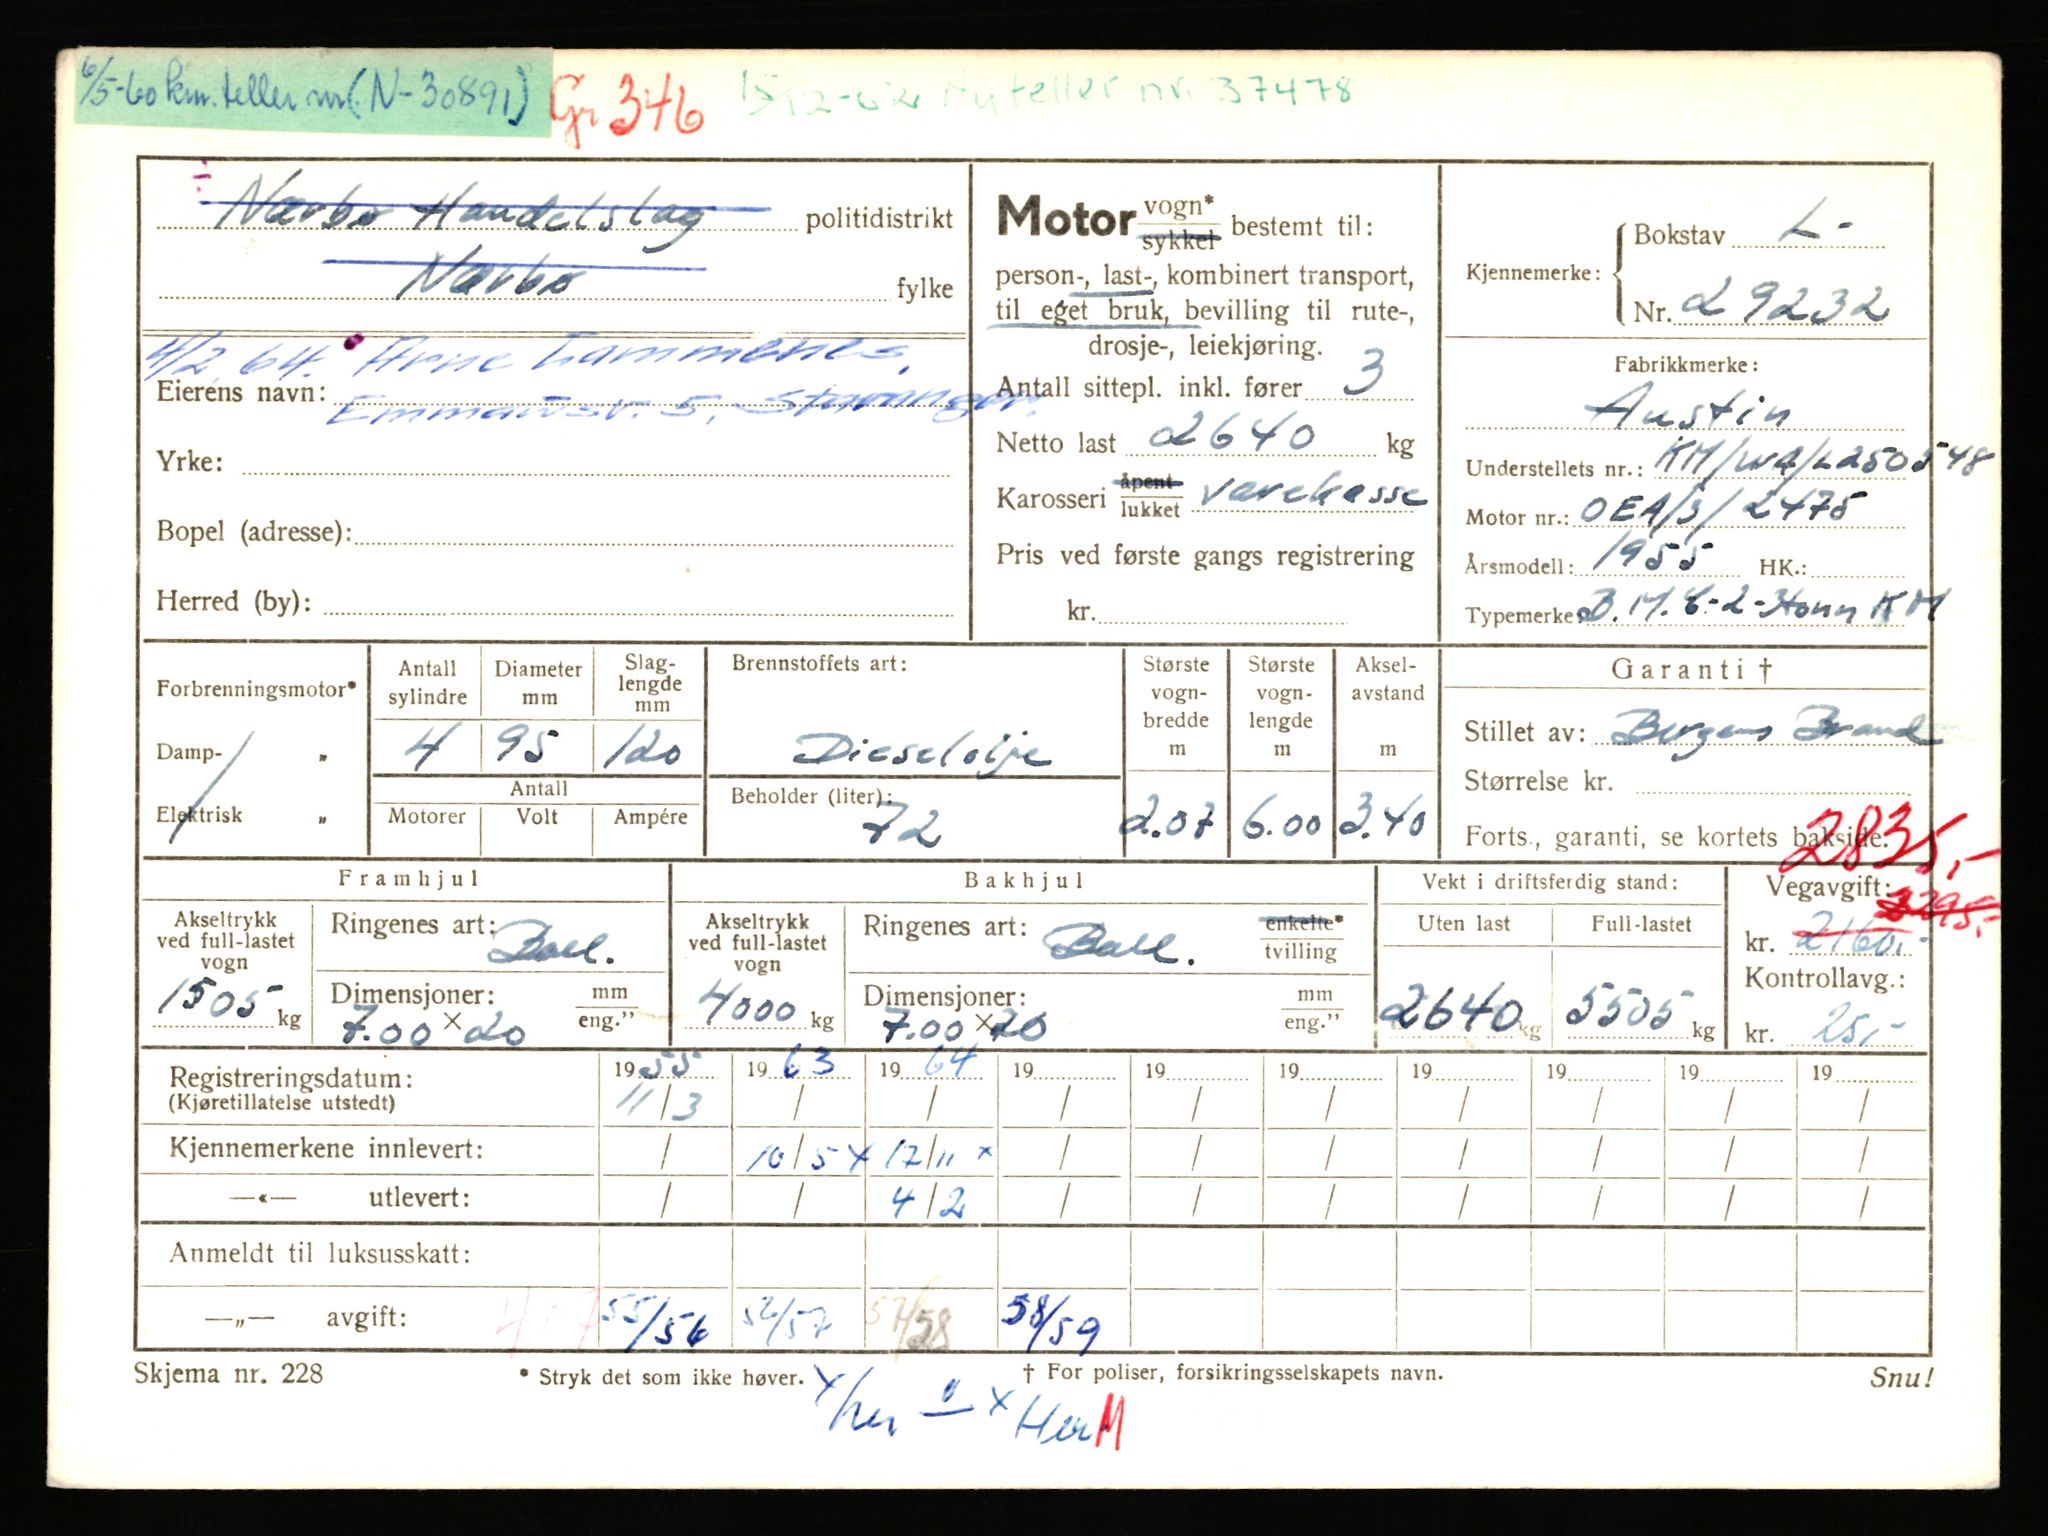 6/5-60 km.teller nr (N-30891) Gr 346 15/12-62 Ny teller nr. 37478
Nærbø Handelslag politidistrikt
Nærbø fylke
4/2 64. Arne
Eierens navn:
Emmausv. 5, Stavanger.
Yrke:
Bopel (adresse):
Herred (by):
Motor vogn* sykkel bestemt til:
person-, last-, kombinert transport,
til eget bruk, bevilling til rute-,
drosje-, leiekjøring.
Antall sittepl. inkl. fører 3
Netto last 2640 kg
Karosseri åpent lukket varekasse
Pris ved første gangs registrering
kr.
Kjennemerke: Bokstav L-
Nr. 29232
Fabrikkmerke:
Austin
Understellets nr.: KM/W4/L250548
Motor nr.: OEA/3/2475
Årsmodell: 1955 HK.:
Typemerke: B.M.C-2-Tonn KM
Forbrenningsmotor*
Damp- „
Elektrisk „
Antall sylindre Diameter mm Slag-lengde mm
4 95 120
Antall
Motorer Volt Ampére
Brennstoffets art:
Dieselolje
Beholder (liter):
72
Største vogn-bredde m
2.07
Største vogn-lengde m
6.00
Aksel-avstand m
3.40
Garanti †
Stillet av: Bergens Brand
Størrelse kr.
Forts., garanti, se kortets bakside.
2835,-
Framhjul
Akseltrykk ved full-lastet vogn
1505 kg
Ringenes art: Ball.
Dimensjoner: mm eng.”
7.00 × 20
Bakhjul
Akseltrykk ved full-lastet vogn
4000 kg
Ringenes art: Ball. enkelte* tvilling
Dimensjoner: mm eng.”
7.00 × 20
Vekt i driftsferdig stand:
Uten last Full-lastet
2640 kg 5505 kg
Vegavgift:
kr. 2160,-
Kontrollavg.:
kr. 25,-
Registreringsdatum: 1955 1963 1964 19 19 19 19 19 19 19
(Kjøretillatelse utstedt) 11/3 / / / / / / / / /
Kjennemerkene innlevert: / 10/5 x 17/11 x / / / / / / /
—«— utlevert: / / 4/2 / / / / / / /
Anmeldt til luksusskatt:
—„— avgift: 55/56 56/57 57/58 58/59
Skjema nr. 228 * Stryk det som ikke høver. † For poliser, forsikringsselskapets navn. Snu!
x/her x Her M